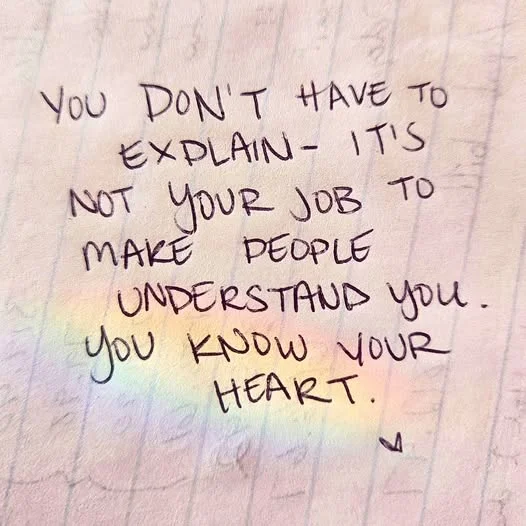 YOU DON'T HAVE TO
EXPLAIN - IT'S
NOT YOUR JOB TO
MAKE PEOPLE
UNDERSTAND YOU.
YOU KNOW YOUR
HEART.